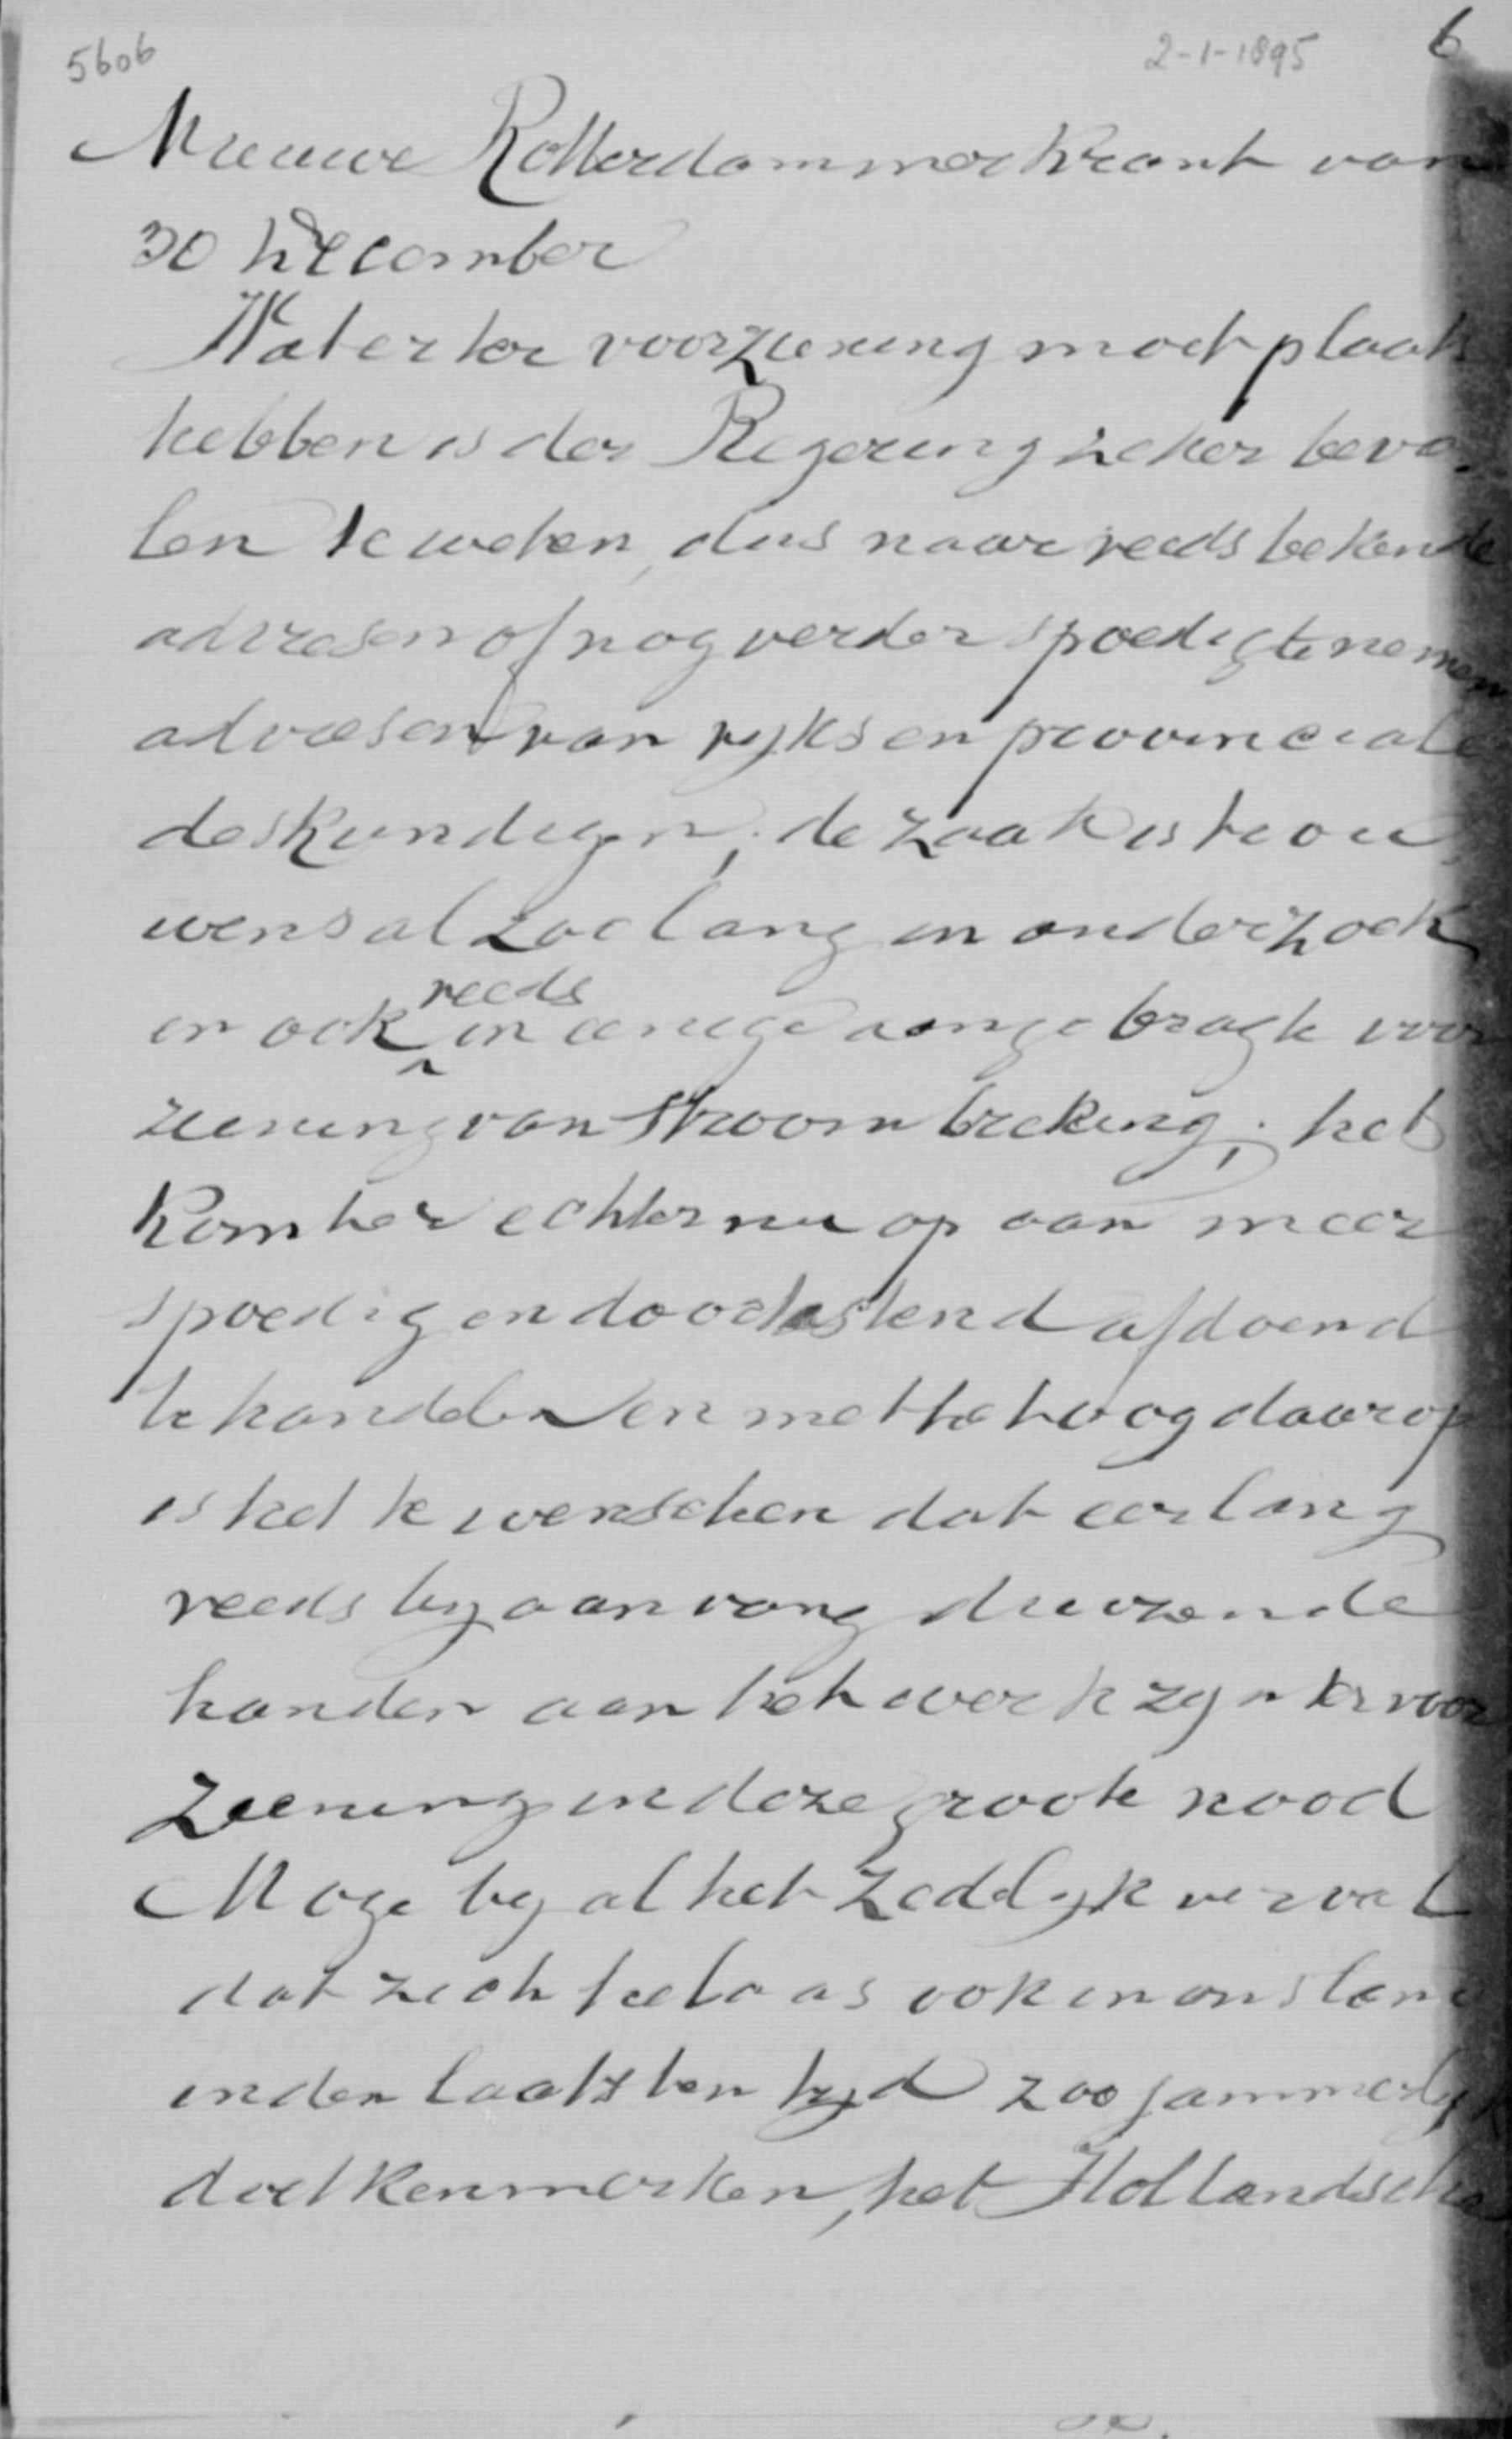 5606 2-1-1895 6
Nieuwe Rotterdammerkrant van
30 December
Wat er ter voorziening moet plaats
hebben is der Regering zeker bevo-
len te weten, dus naar reeds bekende
adviesen of nog verder spoedig te nemen
adviesen van ryks en provinciale
deskundigen; de zaak is trou-
wens al zoo lang in onderzoek
en ook reeds in eenige aangebragte voor
ziening van stroombreking; het
komt er echter nu op aan meer
spoedig en doortastend afdoend
te handelen en met het oog daarop
is het te wenschen dat eerlang
reeds by aanvang duizende
handen aan het werk zyn ter voor
ziening in deze groote nood
Moge by al het zedelyk verval
dat zich helaas ook in ons land
in den laatsten tyd zoo jammerlyk
doet kenmerken, het Hollandsche